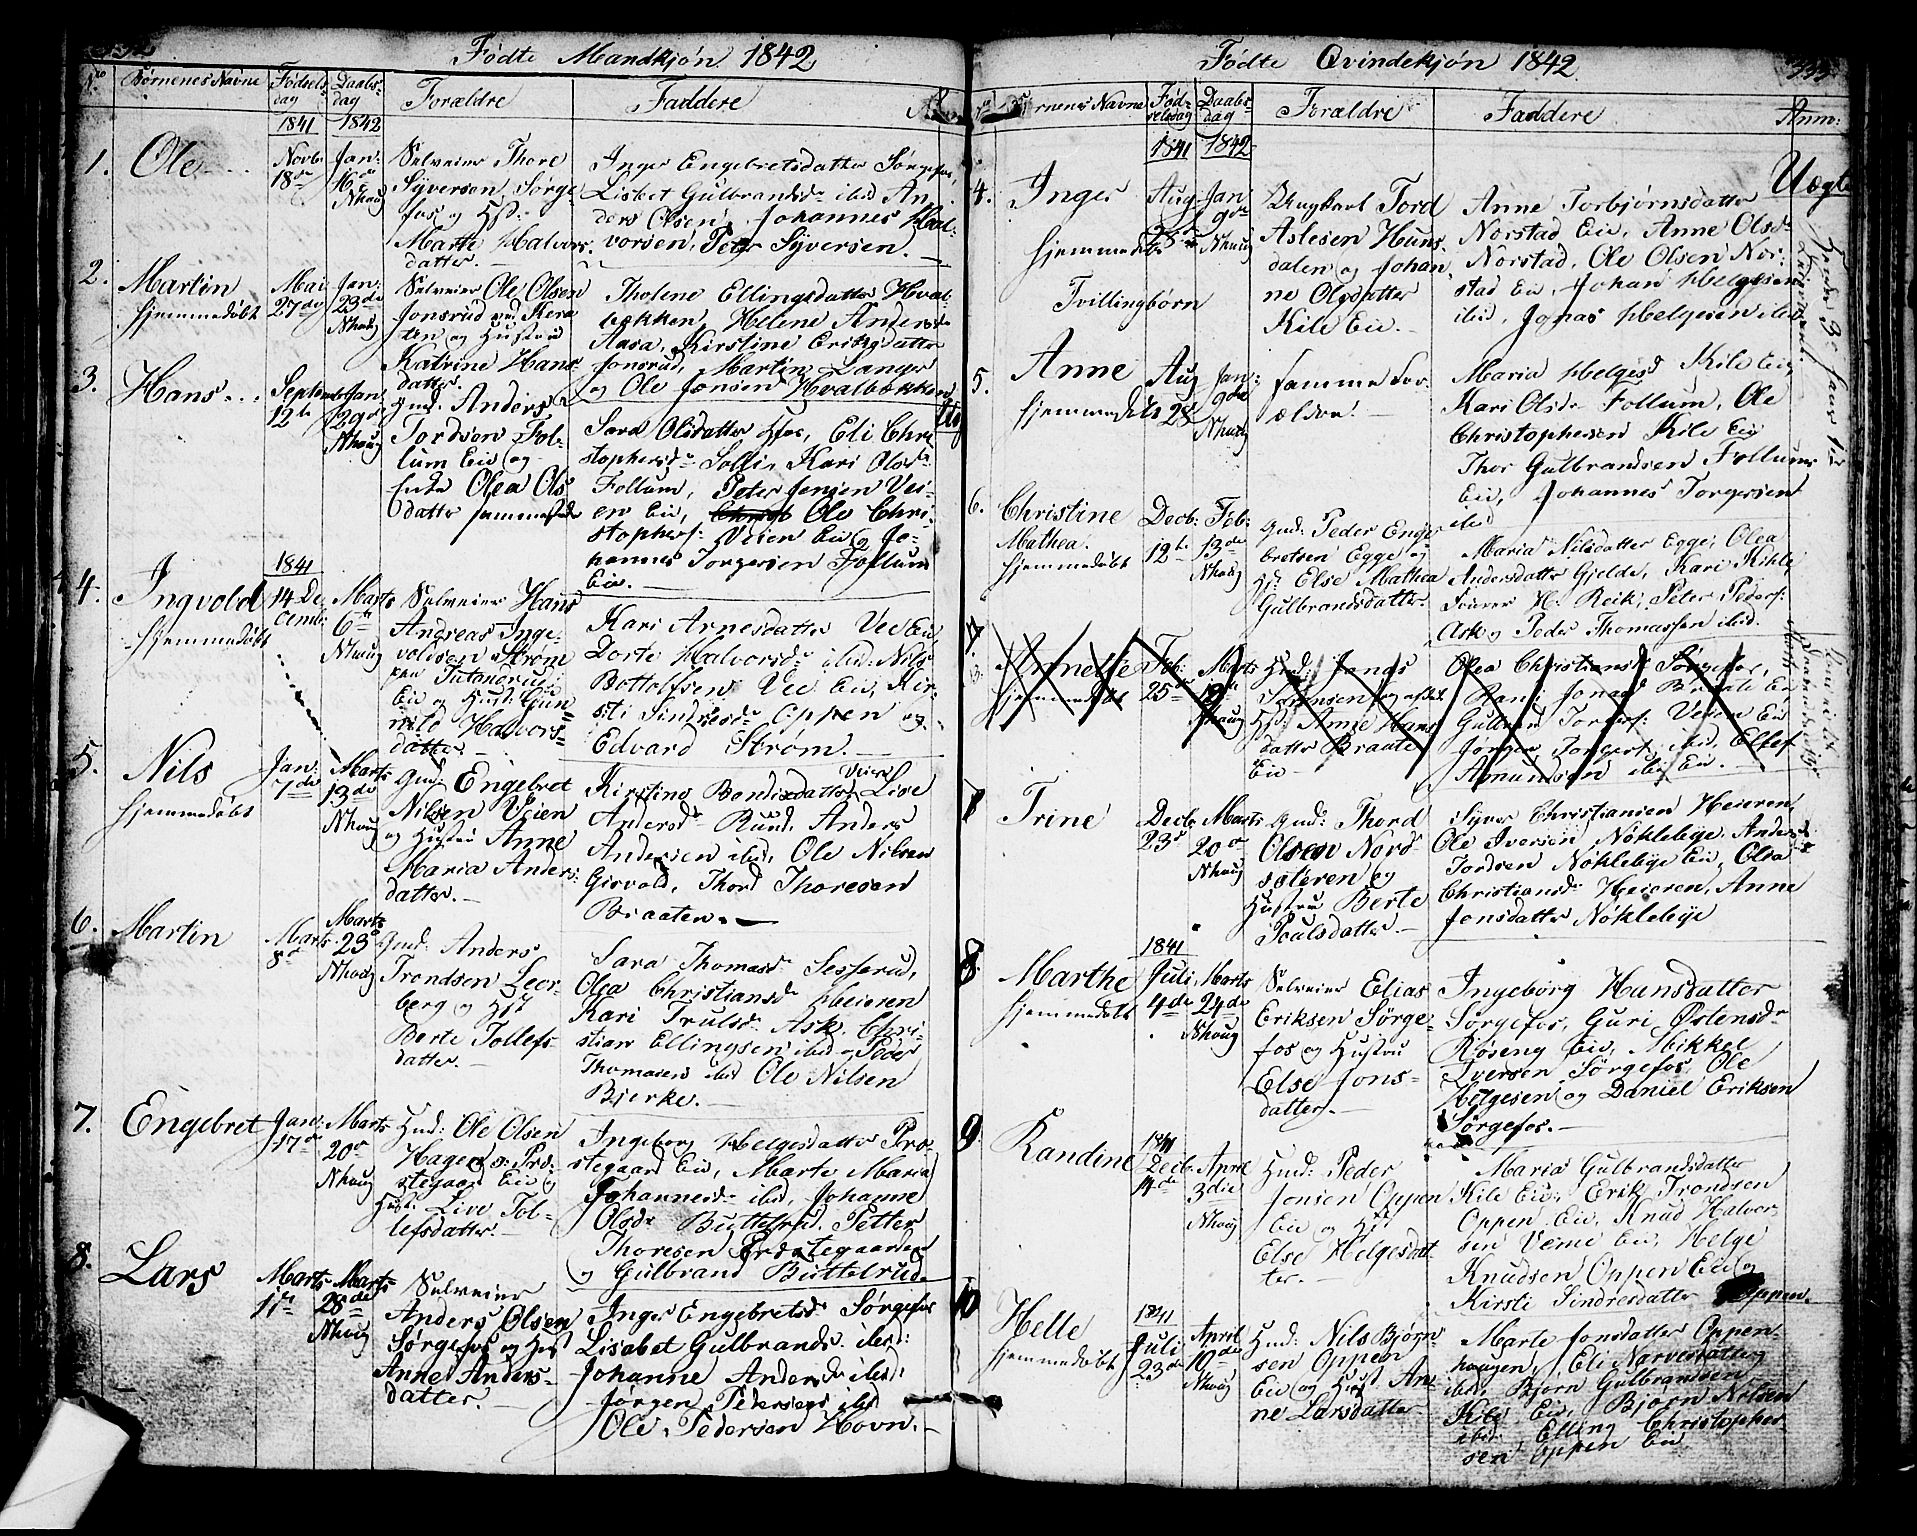 Fødte Mandkjøn 1842
No Børnenes Navne Fødsels dag Daabs dag Forældre Faddere
1841 1842
1. Ole
Novb: 18de
Jan: 16de Nhaug
Selveier Thore
Syversen Sørge
fos og Hst:
Marte Halvors
datter.
Inger Engebretsdatter Sørgefos,
Lisbet Gulbrandsdr ibid An
ders Olsen, Johannes Hal
vorsen, Peter Syversen.
2. Martin
hjemmedøbt
Mai 27de
Jan: 23de Nhaug
Selveier Ole Olsen
Jonsrud ved Kera
ten og Hustru
Katrine Hans
datter.
Tholene Ellingsdatter Hval
bækken, Helene Andersdr
Aasa, Kirstine Eriksdatter
Jonsrud, Martin Langer
og Ole Jonsen Hvalbækken
3. Hans
Septembr 12te
Jan: 29de Nhaug
Gmd. Anders
Tordsen Fol
lum Eie og
Enke Olea Ols
datter sammesteds
Sara Olsdatter Hfos, Eli Chri
stophersdr Sollie, Kari Olsdr
Follum, Peter Jensen Vei
en Eie, Ole Chri
stophers: Veien Eie og Jo
hannes Torgersen Follum
Eie.
4. Ingvold
hjemmedøbt
1841
14 De
cemb:
Marts 6te Nhaug
Selveier Hans
Andreas Inge
voldsen Strøm
Eie og Hust: Gun
nild Halvors
datter.
Kari Arnesdatter Vee Eie,
Dorte Halvorsdr ibid, Nils
Bottolfsen Vee Eie, Kir
sti Sindresdr Oppen og
Edvard Strøm.
5. Nils
hjemmedøbt
Jan: 7de
Marts 13de Nhaug
Gmd: Engebret
Nilsen Veien
og Hustru Anne
Maria Anders
datter.
Kirstine Bendixdatter Veien Live
Andersdr Rund, Anders
Andersen ibid, Ole Nilsen
Gisvold, Thord Thoresen
Braaten.
6. Martin
Marts 8de
Marts 23de Nhaug
Gmd: Anders
Trondsen Leer
berg og Hst
Berte Tollefs
datter.
Sara Thomasdr Sesserud,
Olea Christiansdr Heieren
Kari Trulsdr Ask, Chri
stian Ellingsen ibid og Peder
Thomasen ibid Ole Nilsen
Bjerke.
7. Engebret
Jan: 17de
Marts 20de Nhaug
Hmd: Ole Olsen
Hagen Præ
stegaard Eie og
Hust: Live Tol
lefsdatter.
Ingeborg Helgesdatter Præ
stegaard Eie, Marte Maria
Johannesdr ibid, Johanne
Olsdr Buttelrud, Petter
Thoresen Præstegaarden
og Gulbrand Buttelrud.
8. Lars
Marts 17de
Marts 28de Nhaug
Selveier
Anders Olsen
Sørgefos og Hst
Anne Anders
datter.
Inger Engebretsdr Sørgefos
Lisabet Gulbrandsdr ibid:
Johanne Andersdr ibid,
Jørgen Pedersen ibid
Ole Pedersen Hovn.
Fødte Qvindekjøn 1842
333
Børnenes Navne Fødselsdag Daabsdag Forældre Faddere Anm:
1841 1842
Uægte
4. Inger
hjemmedøbt
Tvillingbørn
Aug 28de
Jan 9de Nhaug
Ungkarl Tord
Aslesen Huns
dalen og Johan
ne Olsdatter
Kile Eie.
Anne Torbjørnsdatter
Norstad Eie, Anne Olsdr
Norstad, Ole Olsen Nor
stad Eie, Johan Helgesen
ibid, Jonas Helgesen ibid
5. Anne
hjemmedøbt
Aug 28
Jan: 9de Nhaug
Samme For
ældre.
Maria Helgesdr Kile Eie,
Kari Olsdr Follum, Ole
Christophersen Kile Eie
Thor Gulbrandsen Follum
Eie, Johannes Torgersen
ibid
6. Christine
Mathea.
hjemmedøbt
Decb: 12te
Feb: 13de Nhaug
Gmd: Peder Enge
bretsen Egge og
H: Else Mathea
Gulbrandsdatter.
Maria Nilsdatter Egge, Olea
Andersdatter Gjelde, Kari Kihle,
Iverer H. Reik, Peter Peders:
Ask og Peder Thomassen ibid.
7.
hjemmedøbt
Feb: 25de
Marts Nhaug
Hmd: Jonas
Hst: Anne Hans
datter Braate
Eie
Olea Christiansdr Sørgefos,
Rani Jonasdr Braate Eie
Gulbrand Torgers: Veien Eie
Jørgen Torgers: ibid, Ellef
Amundsen ibid Eie.
7 Trine
Decb: 23de
Marts 20de Nhaug
Gmd: Thord
Olsen Nord
steren og
Hustru Berte
Poulsdatter.
Syver Christiansen Heieren,
Ole Iversen Nøklebye, Anders
Tordsen Nøklebye Eie, Olea
Christiansdr Heieren, Anne
Jonsdatter Nøklebye
8. Marthe
hjemmedøbt
1841
Juli 4de
Marts 24de Nhaug
Selveier Elias
Eriksen Sørge
fos og Hustru
Else Jons
datter.
Ingeborg Hansdatter
Sørgefos, Guri Østensdr
Røseng Eie, Mikkel
Iversen Sørgefos, Ole
Helgesen og Daniel Eriksen
Sørgefos.
9 Randine
1841
Decb: 14de
April 3die Nhaug
Hmd: Peder
Jensen Oppen
Eie og Hst
Else Helgesdat
ter.
Maria Gulbrandsdatter
Kile Eie, Erik Trondsen
Oppen Eie, Knud Halvor
sen Veme Eie, Helge
Knudsen Oppen Eie og
Kirsti Sindresdatter Oppen.
10 Helle
hjemmedøbt
1841
Juli 23de
April 10de Nhaug
Hmd: Nils Bjørn
sen Oppen
Eie og Hust An
ne Larsdatter
Marte Jonsdatter Oppen
haugen, Eli Narvesdatter
ibid, Bjørn Gulbrandsen
Kile Eie, Bjørn Nilsen
ibid. Elling Christopher
sen Oppen Eie.